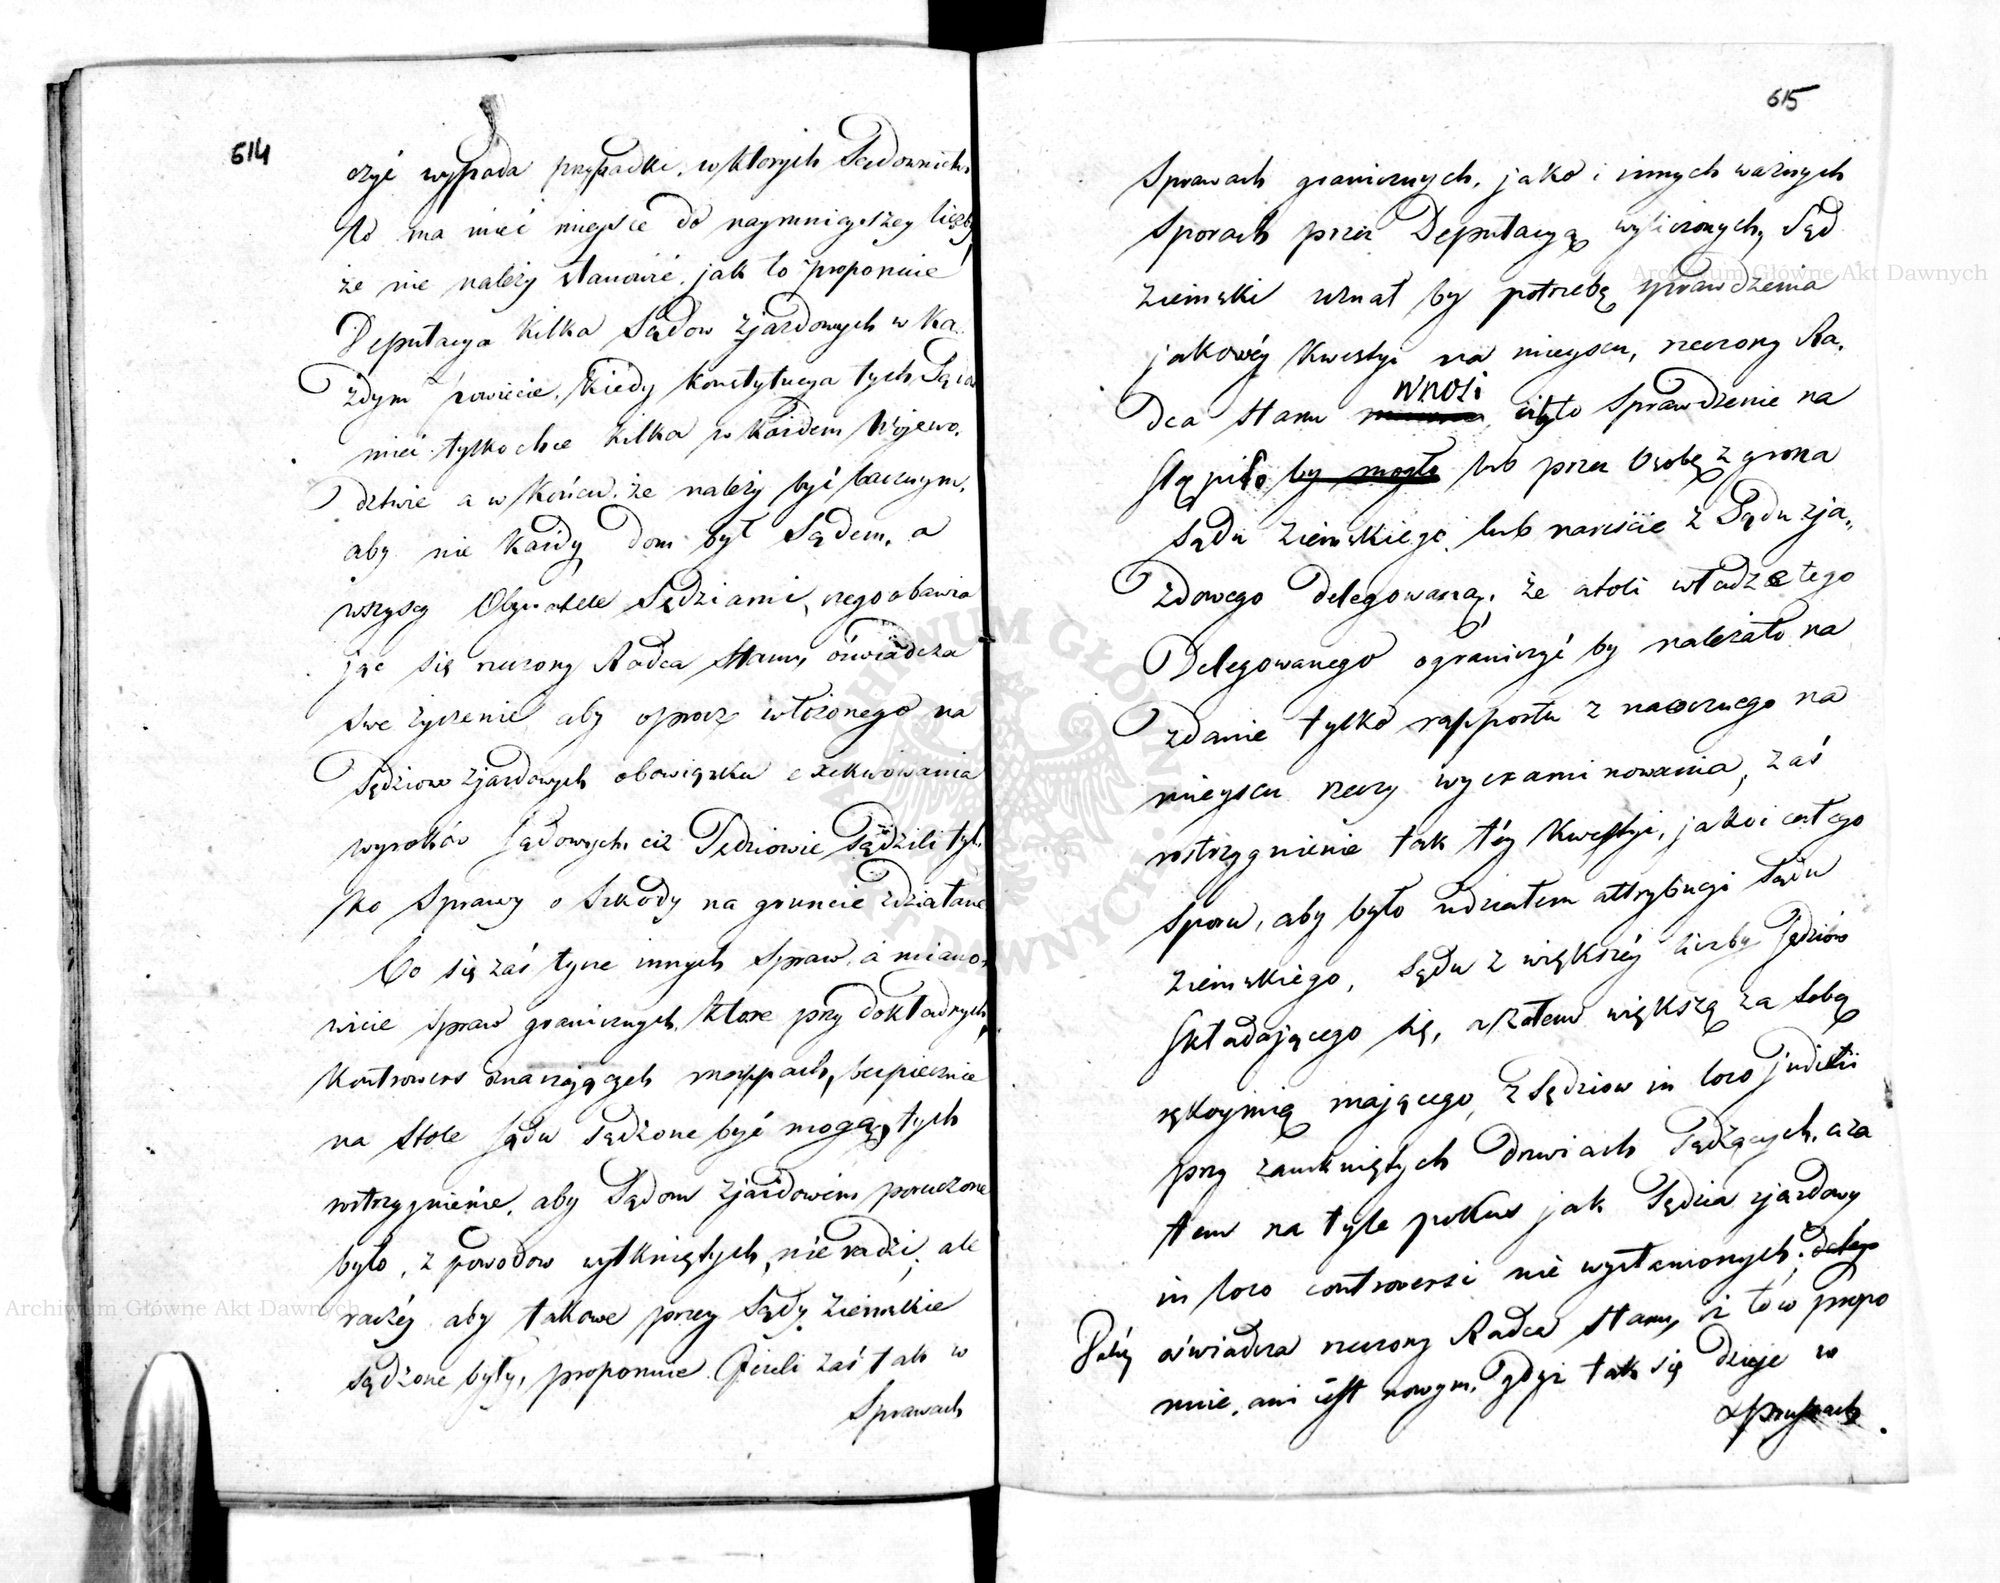 614
czyć wypada przypadki, w których Sądownictw
to ma mieć miejsce do naymnieyszey liczby
że nie należy stanowić, jak to proponuie
Deputacya kilka Sądow zjazdowych w Ka-
żdym powiecie, kiedy konstytucya tych Sądow
mieć tylko chce kilka w każdem Wojewo-
dztwie a w końcu, że należy być bacznym,
aby nie każdy dom był Sądem, a
wszyscy Obywatele Sędziami, czego obawia
jąc się rzeczony Radca Stanu, oświadcza
swe życzenie aby oprocz włożonego na
Sędziow zjazdowych obowiązku exekwowania
wyroków Sądowych, ciż Sędziowie Sądzili tyl-
ko Sprawy o Szkody na gruncie zdziałane
Co się zaś tycze innych Spraw, a miano-
wicie spraw granicznych, ktore przy dokładnych
kontrowers oznaczających mappach, bezpiecznie
na Stole Sądu Sądzone być mogą, tych
rostrzygnienie, aby Sądom zjazdowem poruczone
było, z powodow wytkniętych, nie radzi, ale
raczéy aby takowe przez Sądy Ziemskie
sądzone były, proponuie. Jeżeli zaś tak w
Sprawach
615
Sprawach granicznych, jako i innych ważnych
Sporach przez Deputacyą wyliczonych, Sąd
Ziemski uznał by potrzebę sprawdzenia
jakowéy kwestyi na mieyscu, rzeczony Ra-
dca Stanu wnosi, iżby to Sprawdzenie na
stąpiło by mogło lub przez Osobę z grona
Sądu Ziemskiego, lub nareście z Sądu zja-
zdowego delegowaną, że atoli władzę tego
Delegowanego ograniczyć by należało na
zdanie tylko rapportu z naocznego na
mieyscu rzeczy wyexaminowania, zaś
rostrzygnienie tak téy kwestyi, jako i całego
sporu, aby było udziałem attrybucyi Sądu
Ziemskiego, Sądu z większéy liczby Sędziów
składającego się, a zatem większą za sobą
rękoymią mającego, z Sędziow in loco judicii
przy zamkniętych drzwiach Sądzących, a za
tem na tyle pokus jak Sędzia zjazdowy
in loco controversi nie wystawionych; daléy
Daléy oświadcza rzeczony Radca Stanu, iż to co propo
nuie, ani iest nowym, gdyż tak się dzieje w